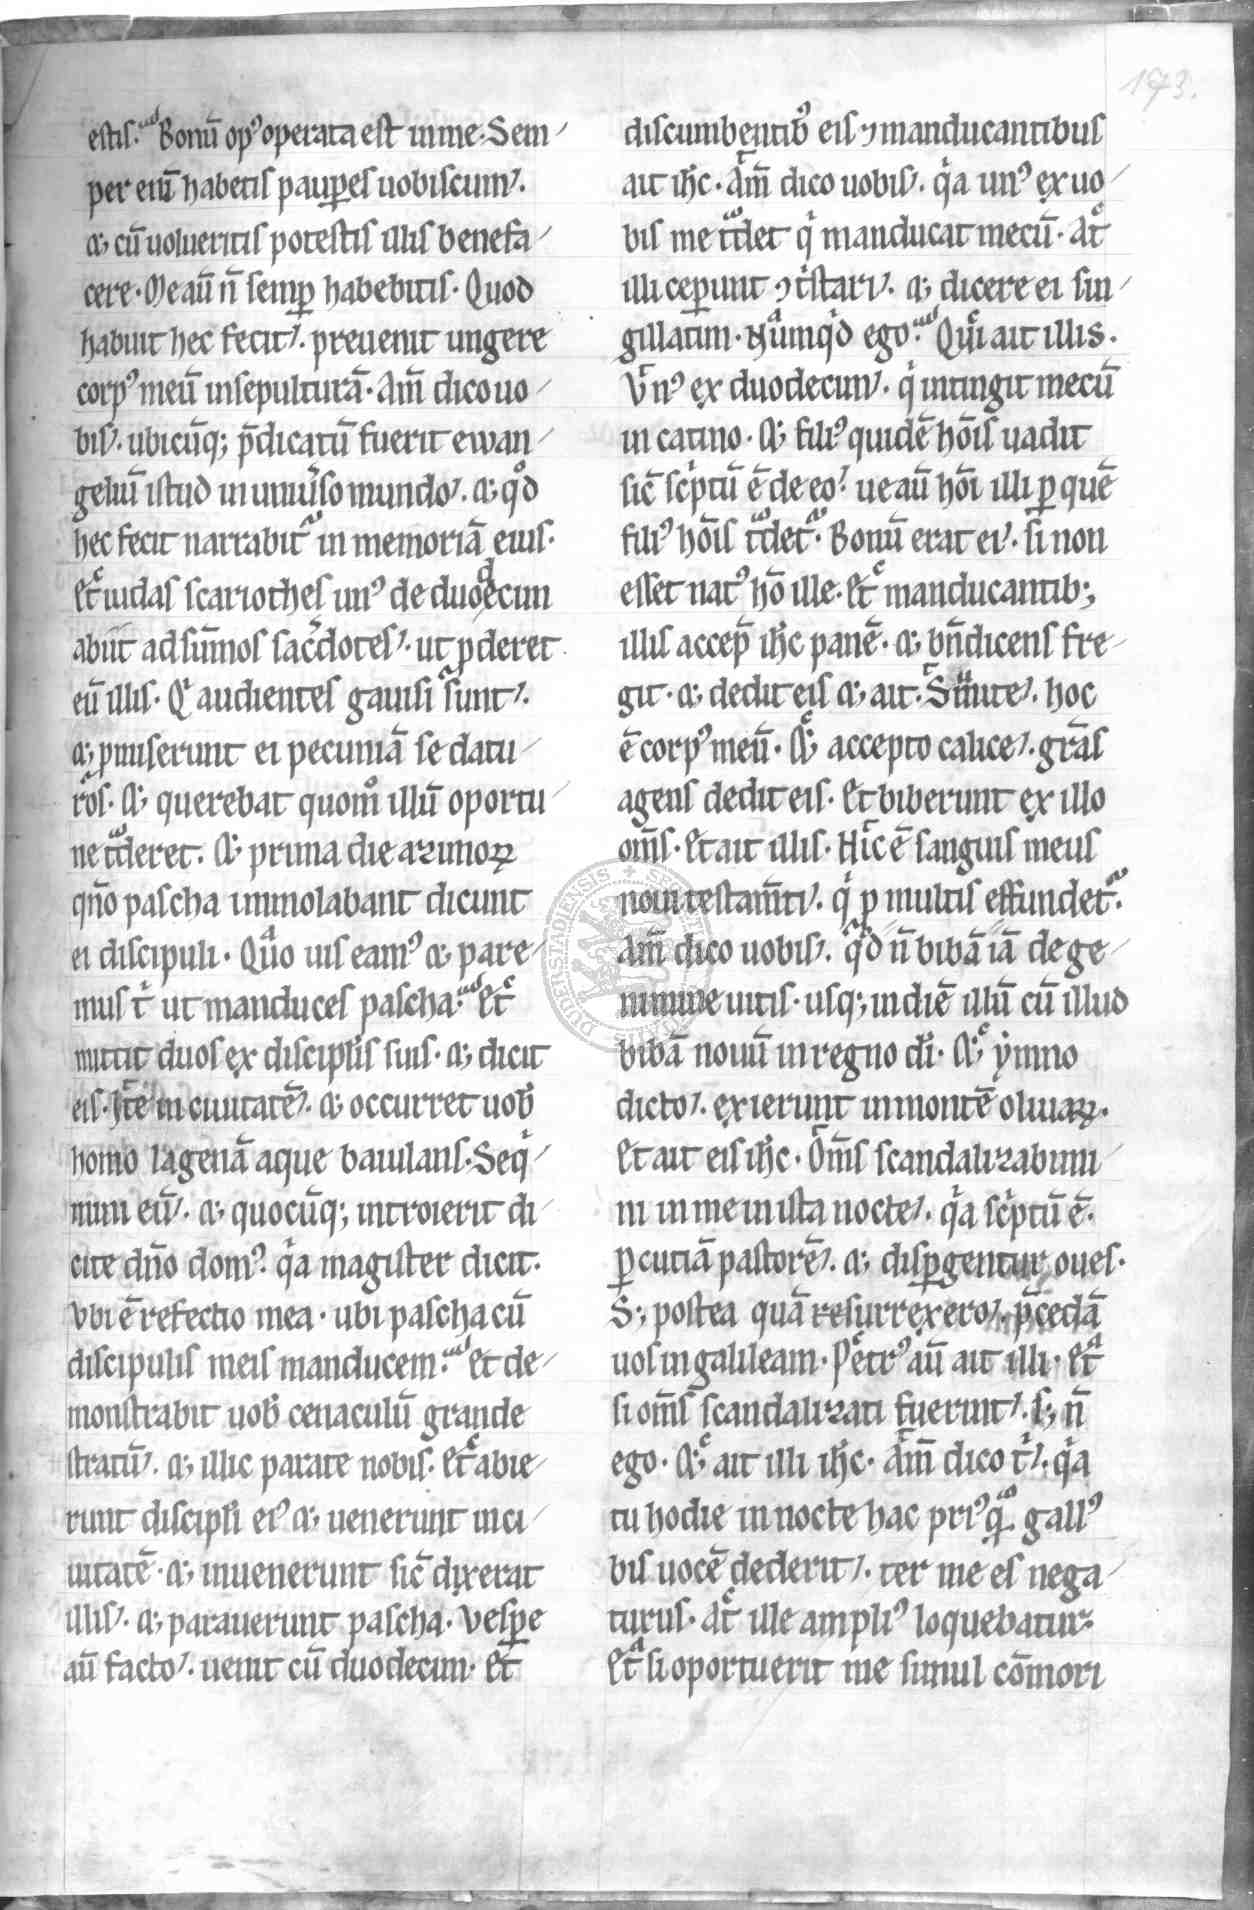 193.
estis. Bonū op᾽ operata est in me. Sem
per eni̅ habetis paup̲es uobiscum.
⁊ cū uolueritis potestis illis benefa
cere. Me aū n̄ semp̲ habebitis. Quod
habuit hec fecit. preuenit ungere
corp᾽ meū in sepulturā. Am̄ dico uo
bis. ubicūq; p̄dicatū fuerit ewan
geliū istud in uniu̓so mundo. ⁊ qͦd
hec fecit narrabit᾽ in memoriā eius.
Et iudas scariothes un᾽ de duodecim
abiit ad sūmos sac̓dotes. ut p̲deret
eū illis. Qͥ audientes gauisi sunt.
⁊ p̲miserunt ei pecuniā se datu
r̄os. ⁊ querebat quomͦ illū oportu
ne tͣderet. ⁊ prima die azimoꝝ
qn̄o pascha immolabant dicunt
ei discipuli. Quͦo uis eam᾽ ⁊ pare
mus tͥ ut manduces pascha. Et
mittit duos ex discipl̄is suis. ⁊ dicit
eis. Ite in ciuitatē. ⁊ occurret uob̄
homo lagenā aque baiulans. Seqͥ
mini eū. ⁊ quocūq; introierit di
cite dn̄o dom᾽. qͥa magister dicit.
Vbi ē refectio mea. ubi pascha cū
discipulis meis manducem. et de
monstrabit uob̄ cenaculū grande
stratū. ⁊ illic parate nobis. Et abie
runt discipl̄i ei᾽ ⁊ uenerunt in ci
uitatē. ⁊ inuenerunt sic̄ dixerat
illis. ⁊ parauerunt pascha. Vesp̲e
aū facto. uenit cū duodecim. Et
discumbentib᾽ eis ⁊ manducantibus
ait ih̄c. Am̄ dico uobis. qͥa un᾽ ex uo
bis me tͣdet qͥ manducat mecū. At
illi cep̲unt ꝯtͥstari. ⁊ dicere ei sin
gillatim. Nūmqͥd ego. Qui ait illis.
Vn᾽ ex duodecim. qͥ intingit mecū
in catino. ⁊ fili᾽ quidē hōis uadit
sic̄ scͥptū ē de eo. ue aū hōi illi p̲ quē
fili᾽ hōis tͣdet᾽. Bonū erat ei. si non
esset nat᾽ hō ille. Et manducantib;
illis accep̲ ih̄c panē. ⁊ bn̄dicens fre
git. ⁊ dedit eis ⁊ ait. Sumite. hoc
ē corp᾽ meū. ⁊ accepto calice. gr̄as
agens dedit eis. Et biberunt ex illo
om̄s. Et ait illis. Hic ē sanguis meus
noui testam̄ti. qͥ p̲ multis effundet᾽.
Am̄ dico uobis. qͥd n̄ bibā iā de ge
nimine uitis. usq; in diē illū cū illud
bibā nouū in regno dī. ⁊ ymno
dicto. exierunt in montē oliuaꝝ.
Et ait eis ih̄c. Om̄s scandalizabimi
ni in me in ista nocte. qͥa scͥptū ē.
p̲cutiā pastorē. ⁊ disp̲gentur oues.
S; postea quā resurrexero. p̄cedā
uos in galileam. Petr᾽ aū ait illi. Et
si om̄s scandalizati fuerint. s; n̄
ego. ⁊ ait illi ih̄c. Am̄ dico tͥ. qͥa
tu hodie in nocte hac pri᾽ qͣ gall᾽
bis uocē dederit. ter me es nega
turus. At ille ampli᾽ loquebatur.
Et si oportuerit me simul cōmori